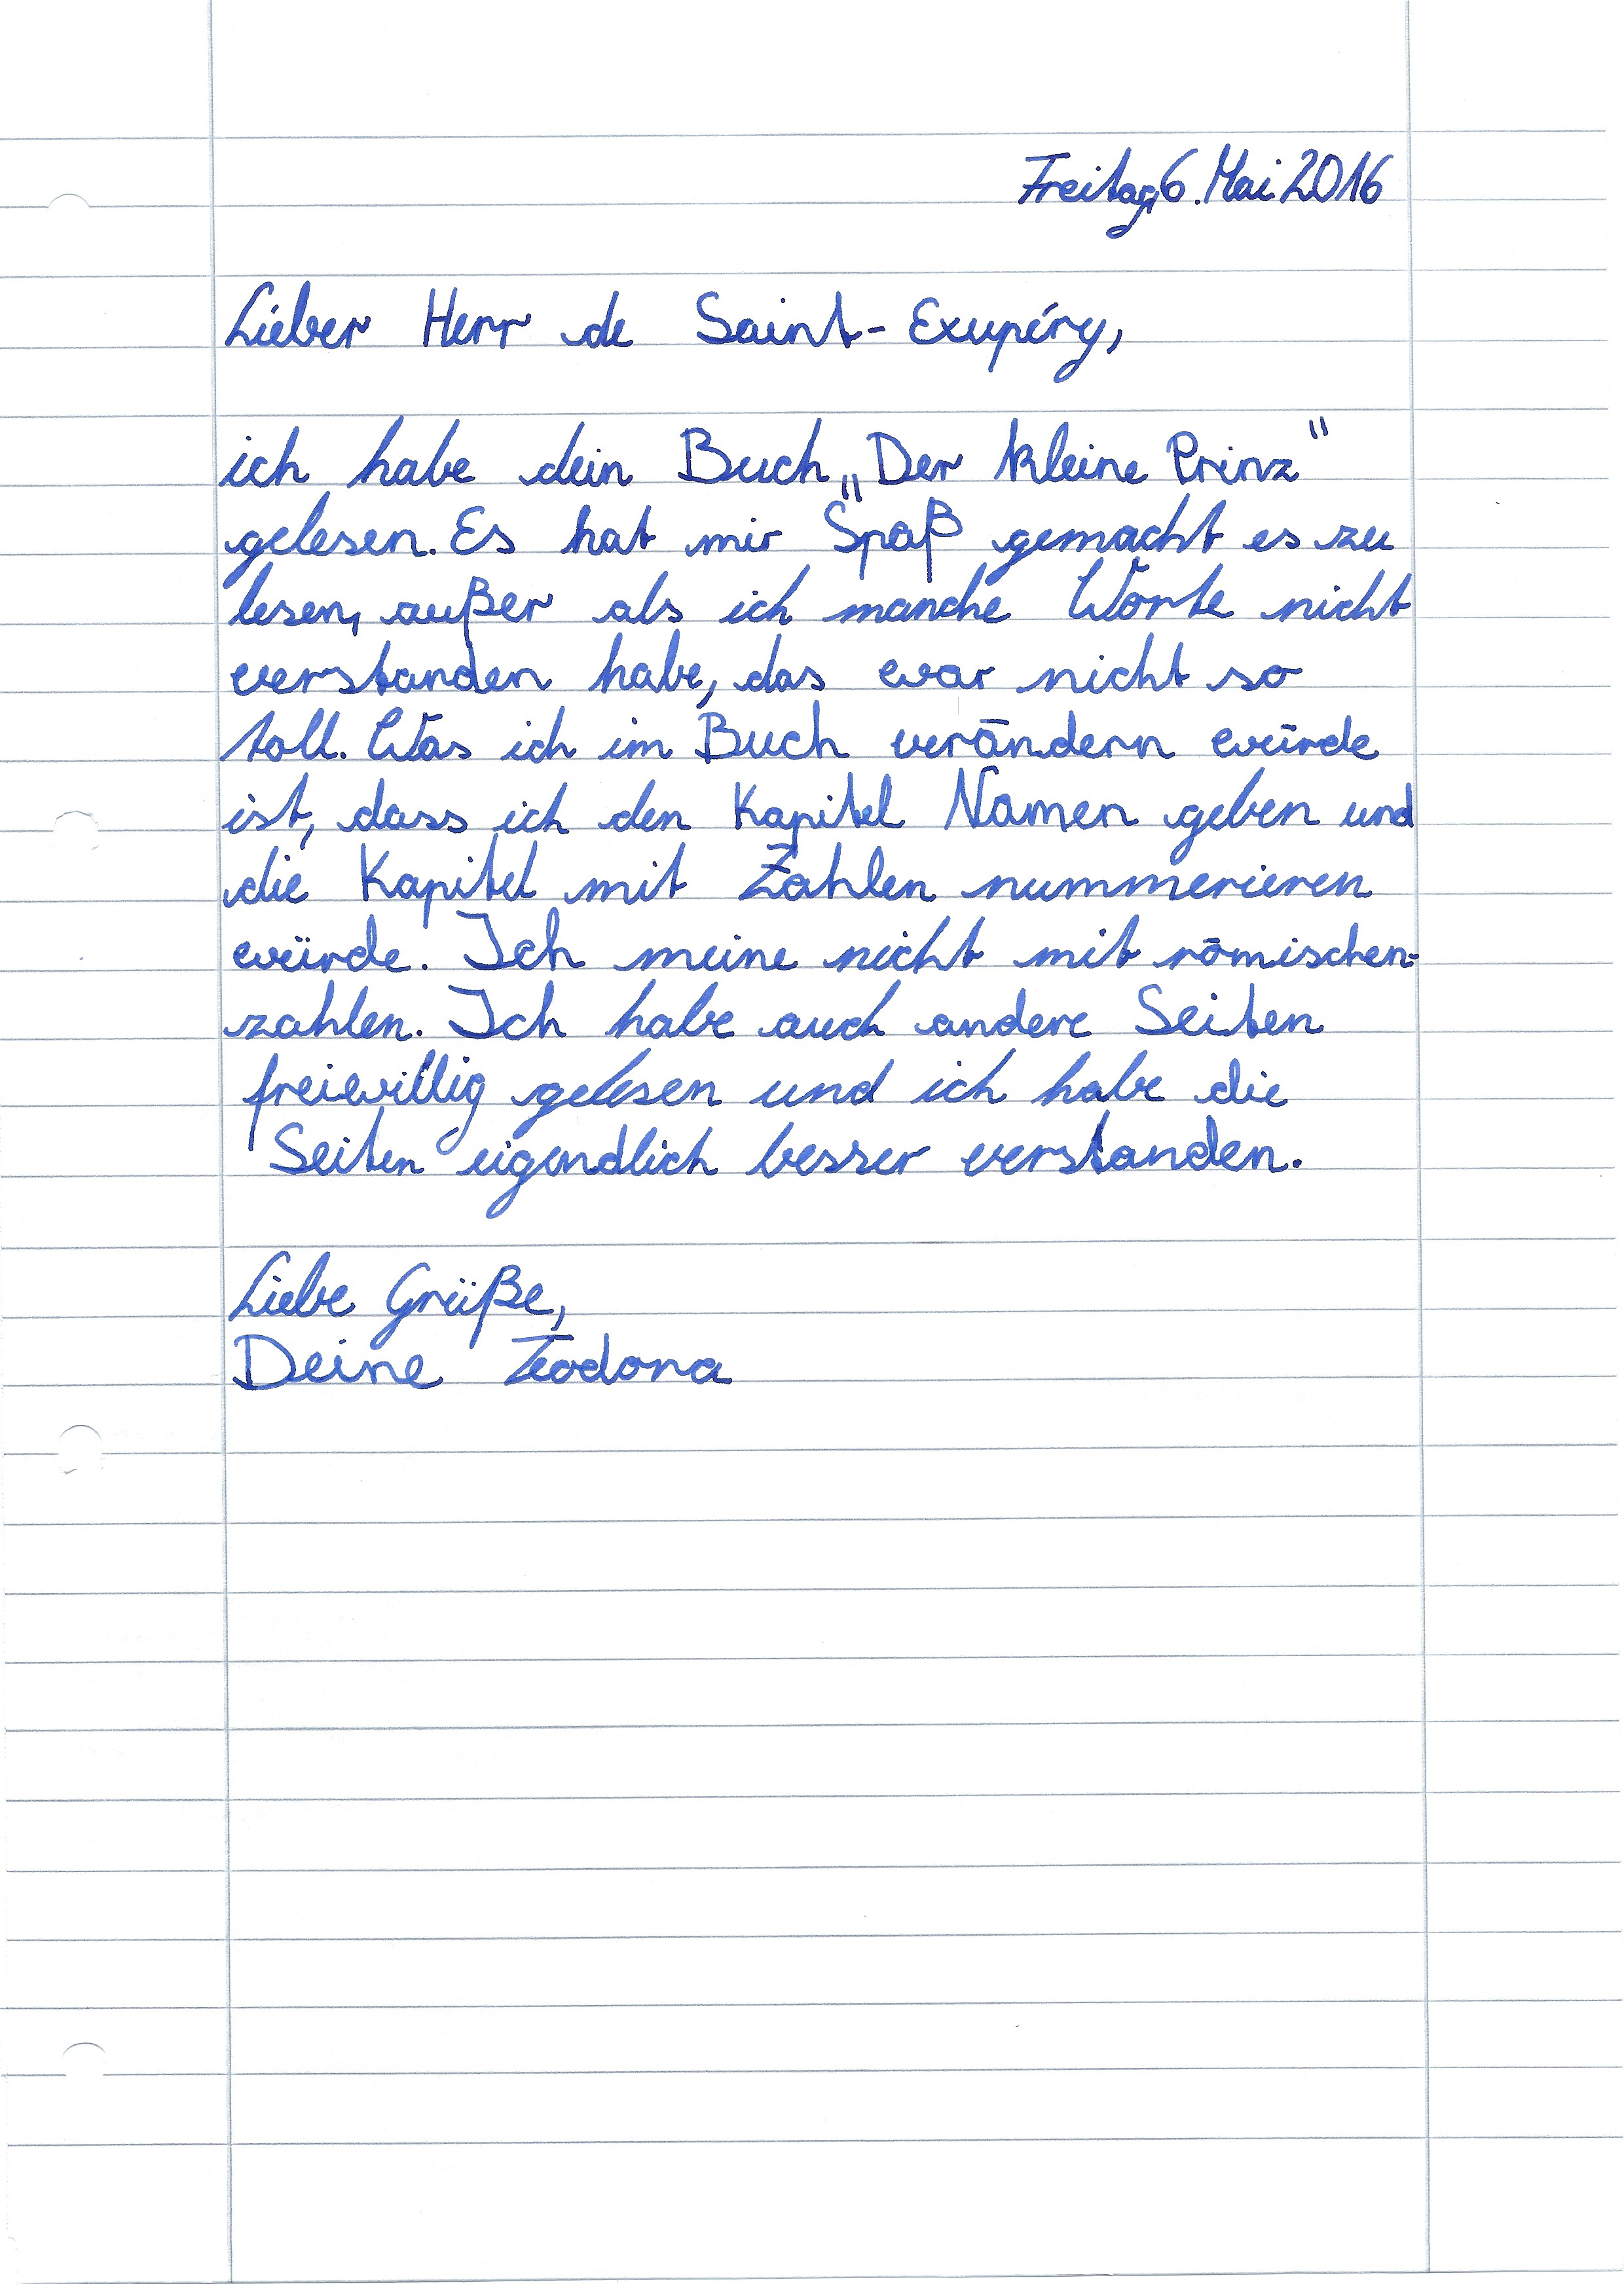 Freitag, 6. Mai 2016
Lieber Herr de Saint-Exupéry,
ich habe dein Buch „Der kleine Prinz"
gelesen. Es hat mir Spaß gemacht es zu
lesen, außer als ich manche Worte nicht
verstanden habe, das war nicht so
toll. Was ich im Buch verändern würde
ist, dass ich den Kapitel Namen geben und
die Kapitel mit Zahlen nummerieren
würde. Ich meine nicht mit römischen-
zahlen. Ich habe auch andere Seiten
freiwillig gelesen und ich habe die
Seiten eigendlich besser verstanden.
Liebe Grüße,
Deine Teodora